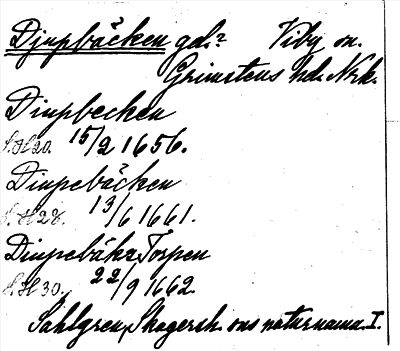 Djupbäcken gd.? Viby sn.
Grimstens hd. Nrk.
Diupbecken
S.H 20. 15/2 1656.
Diupebäcken
S.H 28. 13/6 1661.
Diupebäks Torpen
S.H 30. 22/9 1662.
Sahlgren, Skagersh. sns naturnamn I.